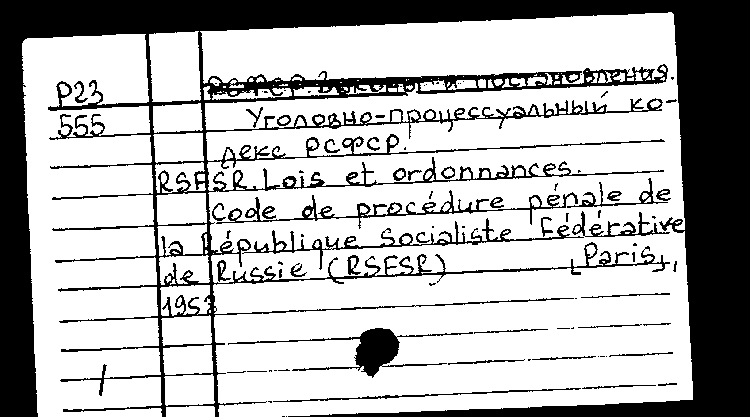 Р23 РСФСР. Законы и постановления.
555 Уголовно-процессуальный ко-
декс РСФСР.
RSFSR. Lois et ordonnances.
Code de procédure pénale de
la République Socialiste Fédérative
de Russie (RSFSR) [Paris],
195
/